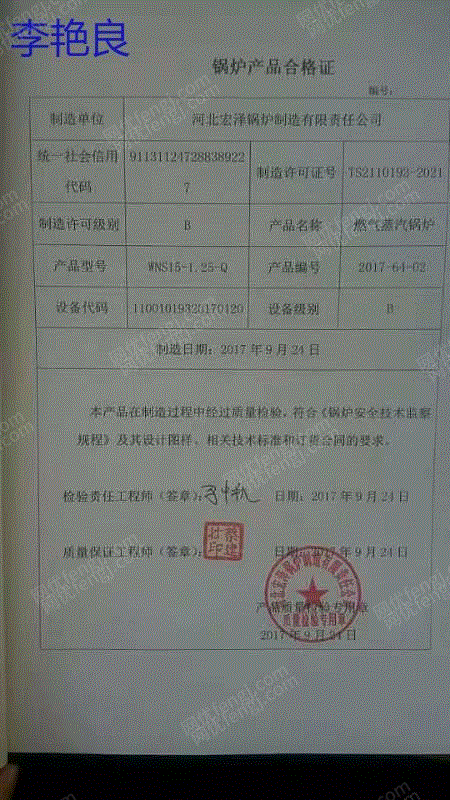 李艳良
锅炉产品合格证
编号：
制造单位 河北宏泽锅炉制造有限责任公司
统一社会信用代码 911311247288389227 制造许可证号 TS2110193-2021
制造许可级别 B 产品名称 燃气蒸汽锅炉
产品型号 WNS15-1.25-Q 产品编号 2017-64-02
设备代码 11001019320170120 设备级别 B
制造日期：2017 年 9 月 24 日
本产品在制造过程中经过质量检验，符合《锅炉安全技术监察
规程》及其设计图样、相关技术标准和订货合同的要求。
检验责任工程师（签章）： 日期：2017 年 9 月 24 日
质量保证工程师（签章）： 日期：2017 年 9 月 24 日
产品质量检验专用章
质量检验专用章
2017 年 9 月 24 日